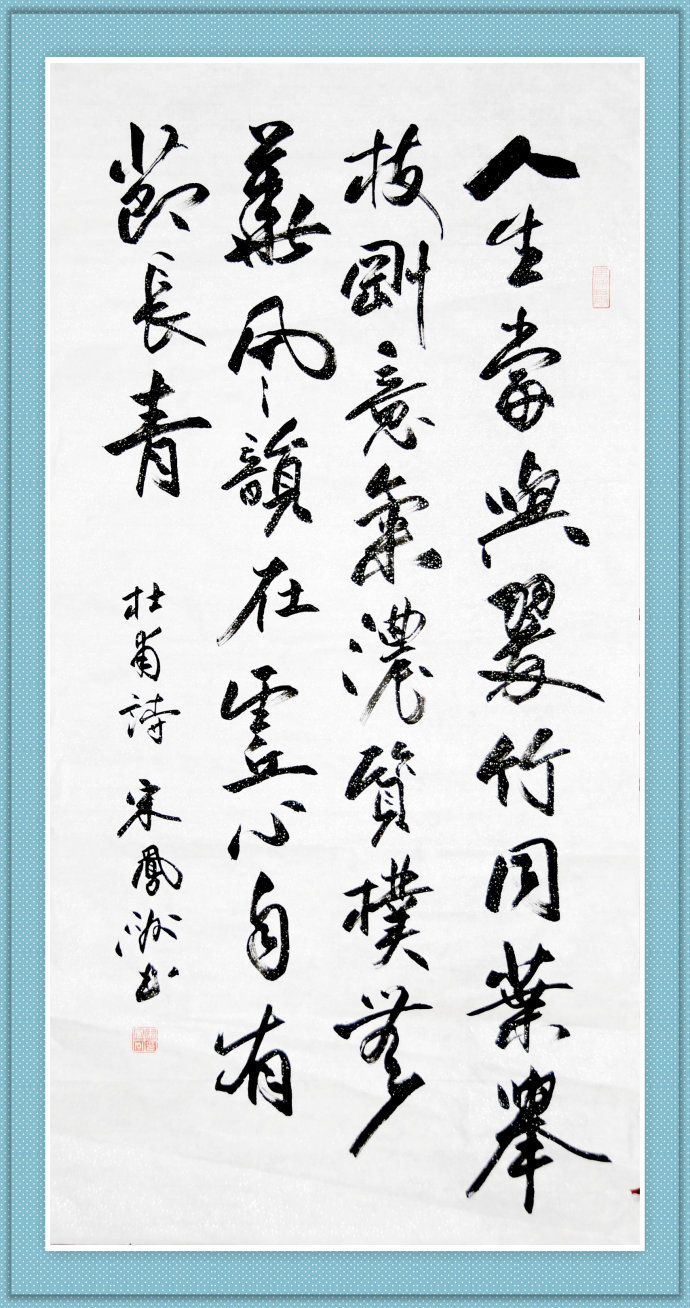 人生常與翠竹同葉舉
枝剛意氣濃質樸無
華風韻在虛心自有
節長青
杜甫詩 宋鳳洲書